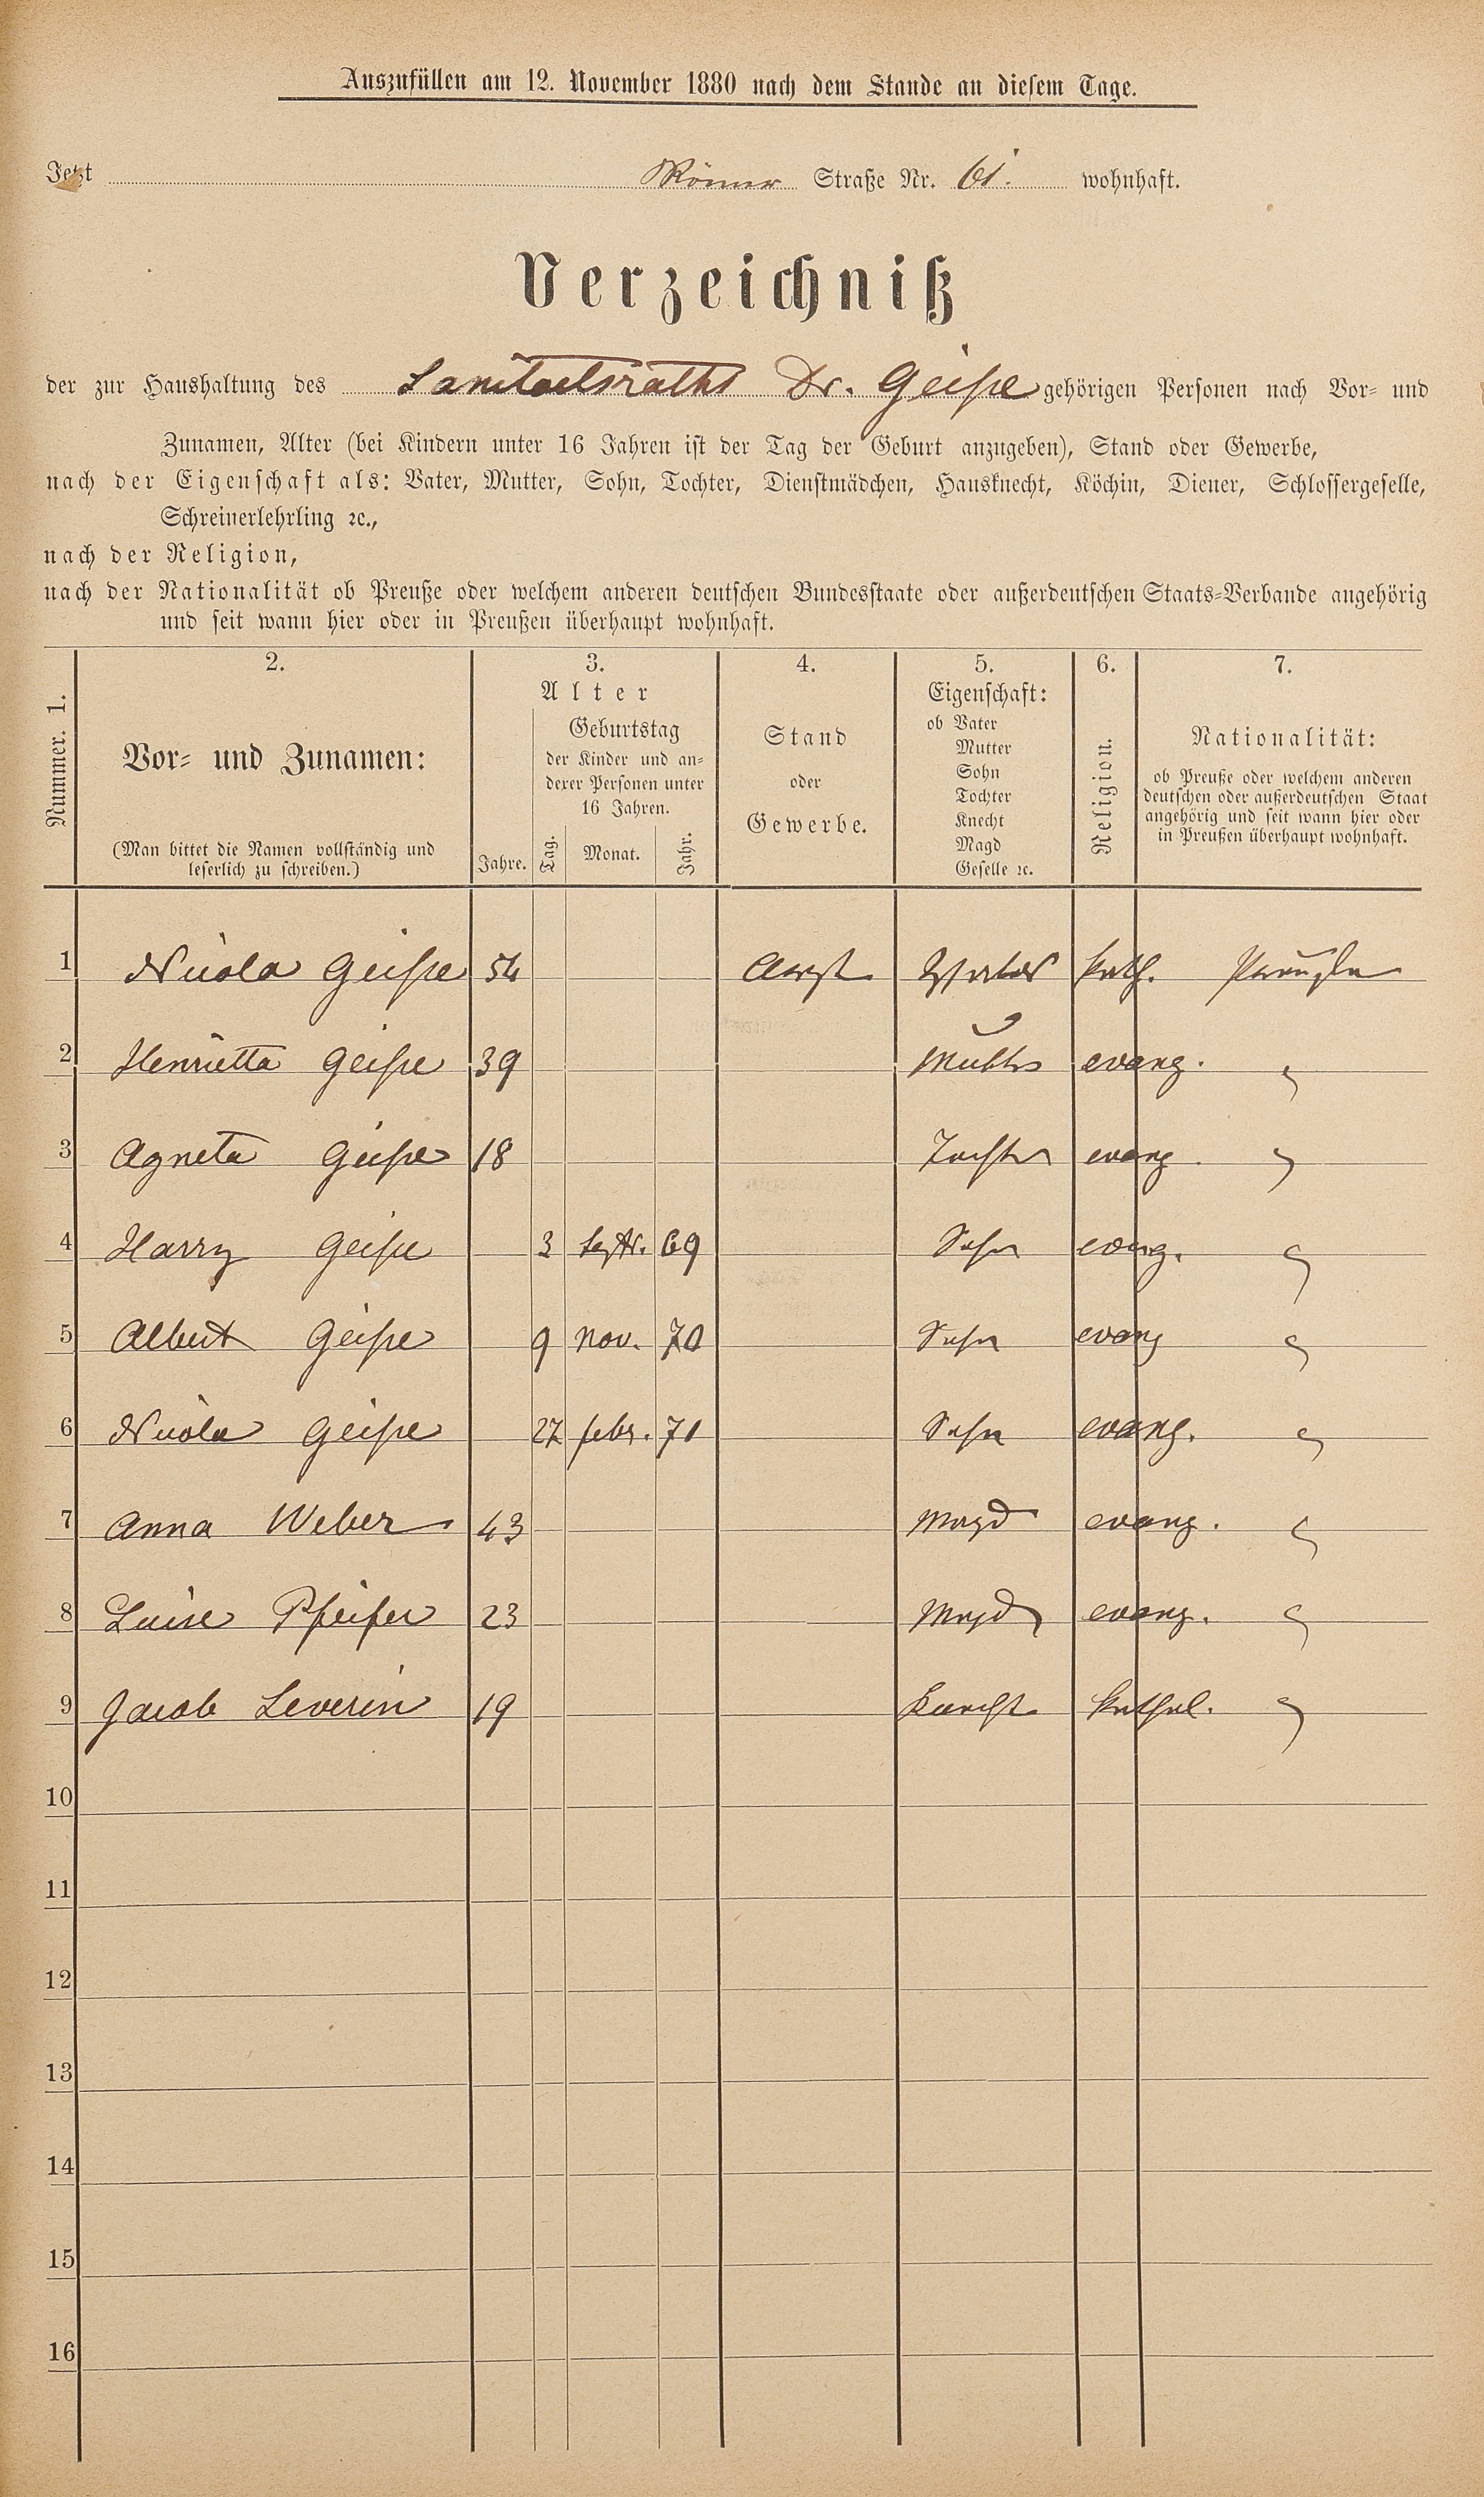 Auszufüllen am 12. November 1880 nach dem Stande an diesem Tage.
Jetzt Römer Straße Nr. 61. wohnhaft.
Verzeichniß
der zur Haushaltung des Sanitaetsraths Dr. Geiße gehörigen Personen nach Vor- und
Zunamen, Alter (bei Kindern unter 16 Jahren ist der Tag der Geburt anzugeben), Stand oder Gewerbe,
nach der Eigenschaft als: Vater, Mutter, Sohn, Tochter, Dienstmädchen, Hausknecht, Köchin, Diener, Schlossergeselle,
Schreinerlehrling ꝛc.,
nach der Religion,
nach der Nationalität ob Preuße oder welchem anderen deutschen Bundesstaate oder außerdeutschen Staats-Verbande angehörig
und seit wann hier oder in Preußen überhaupt wohnhaft.
Nummer. 1.
2.
Vor- und Zunamen:
(Man bittet die Namen vollständig und
leserlich zu schreiben.)
3.
Alter
Jahre.
Geburtstag
der Kinder und an-
derer Personen unter
16 Jahren.
Tag. Monat. Jahr.
4.
Stand
oder
Gewerbe.
5.
Eigenschaft:
ob Vater
Mutter
Sohn
Tochter
Knecht
Magd
Geselle ꝛc.
6.
Religion.
7.
Nationalität:
ob Preuße oder welchem anderen
deutschen oder außerdeutschen Staat
angehörig und seit wann hier oder
in Preußen überhaupt wohnhaft.
1 Nicola Geiße 54 Arzt Vater kath. Preuße
2 Henrietta Geiße 39 Mutter evang. "
3 Agneta Geiße 18 Tochter evang. "
4 Harry Geiße 3 Septr. 69 Sohn evang. "
5 Albert Geiße 9 Nov. 70 Sohn evang "
6 Nicola Geiße 27 febr. 71 Sohn evang. "
7 Anna Weber 43 Magd evang. "
8 Luise Pfeifer 23 Magd evang. "
9 Jacob Severin 19 Knecht kathol. "
10
11
12
13
14
15
16